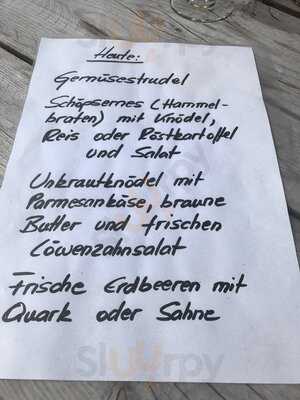 Heute:
Gemüsestrudel
Schöpsernes (Hammel-
braten) mit Knödel,
Reis oder Röstkartoffel
und Salat
Unkrautknödel mit
Parmesankäse, braune
Butter und frischen
Löwenzahnsalat
Frische Erdbeeren mit
Quark oder Sahne
Sluurpy